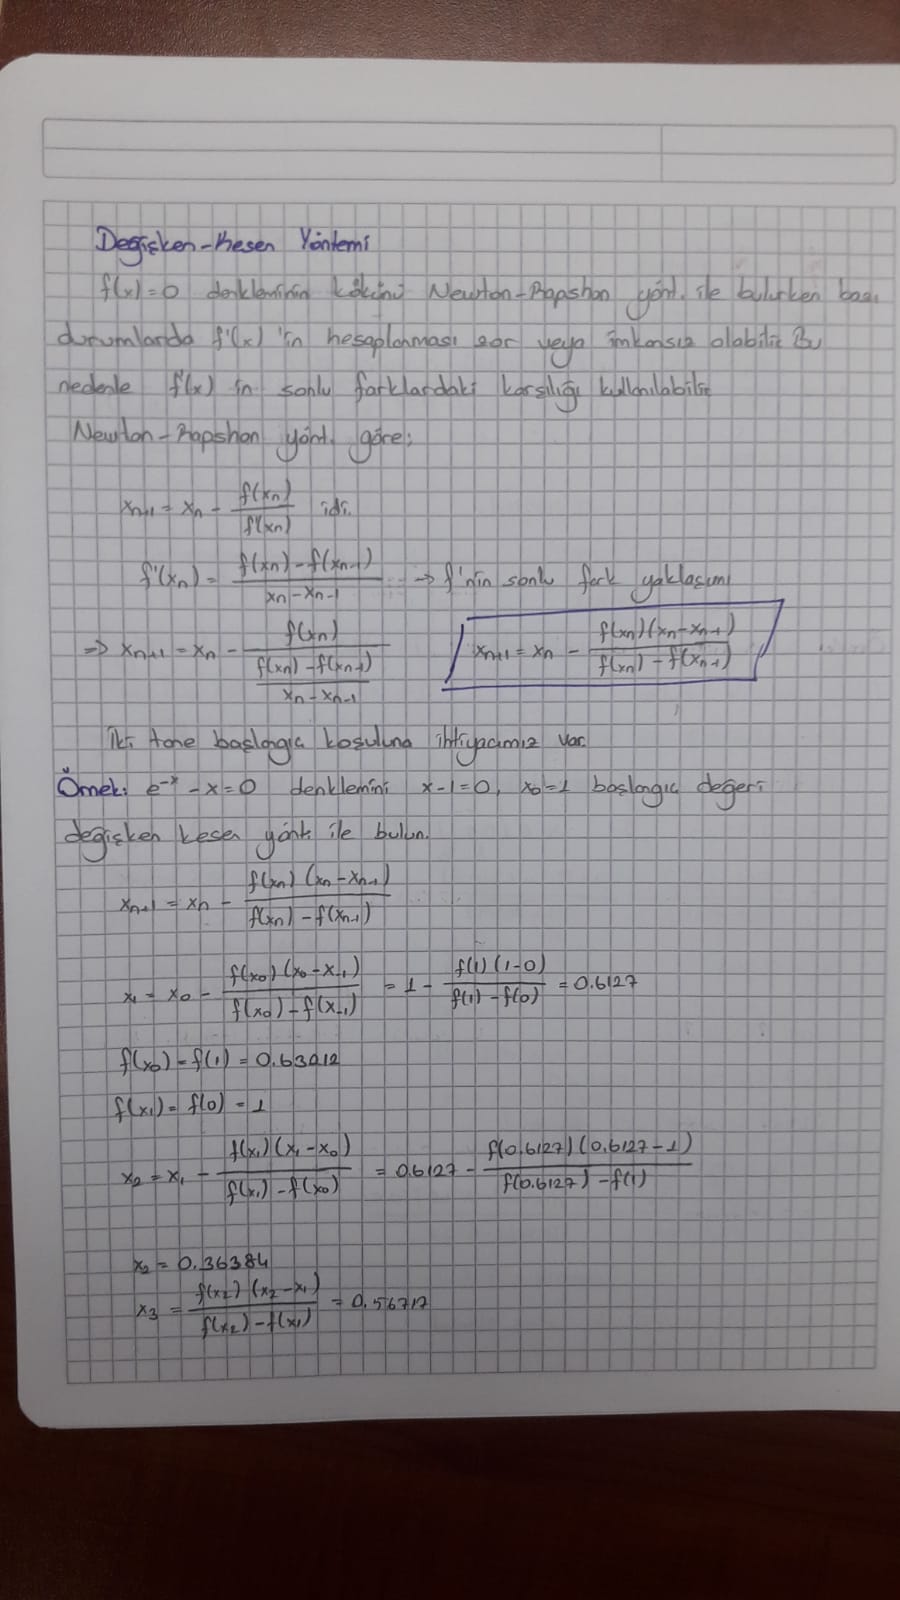 Değişken-Kesen Yöntemi
f(x)=0 denkleminin kökünü Newton-Rapshon yönt. ile bulurken bazı
durumlarda f'(x) 'in hesaplanması zor veya imkansız olabilir. Bu
nedenle f'(x) in sonlu farklardaki karşılığı kullanılabilir
Newton-Rapshon yönt. göre;
xn+1 = xn - f(xn)/f'(xn) idi.
f'(xn) = (f(xn) - f(xn-1))/(xn - xn-1) → f'nin sonlu fark yaklaşımı
⇒ xn+1 = xn - f(xn)/((f(xn) - f(xn-1))/(xn - xn-1)) xn+1 = xn - f(xn)(xn - xn-1)/(f(xn) - f(xn-1))
İki tane başlangıç koşuluna ihtiyacımız var.
Örnek: e^-x - x = 0 denklemini x-1=0, x0=1 başlangıç değeri
değişken kesen yönt. ile bulun.
xn+1 = xn - f(xn)(xn - xn-1)/(f(xn) - f(xn-1))
x1 = x0 - f(x0)(x0 - x-1)/(f(x0) - f(x-1)) = 1 - f(1)(1-0)/(f(1) - f(0)) = 0.6127
f(x0) = f(1) = 0.63212
f(x1) = f(0) = 1
x2 = x1 - f(x1)(x1 - x0)/(f(x1) - f(x0)) = 0.6127 - f(0.6127)(0.6127-1)/(f(0.6127) - f(1))
x2 = 0.36384
x3 = f(x2)(x2 - x1)/(f(x2) - f(x1)) = 0.56717